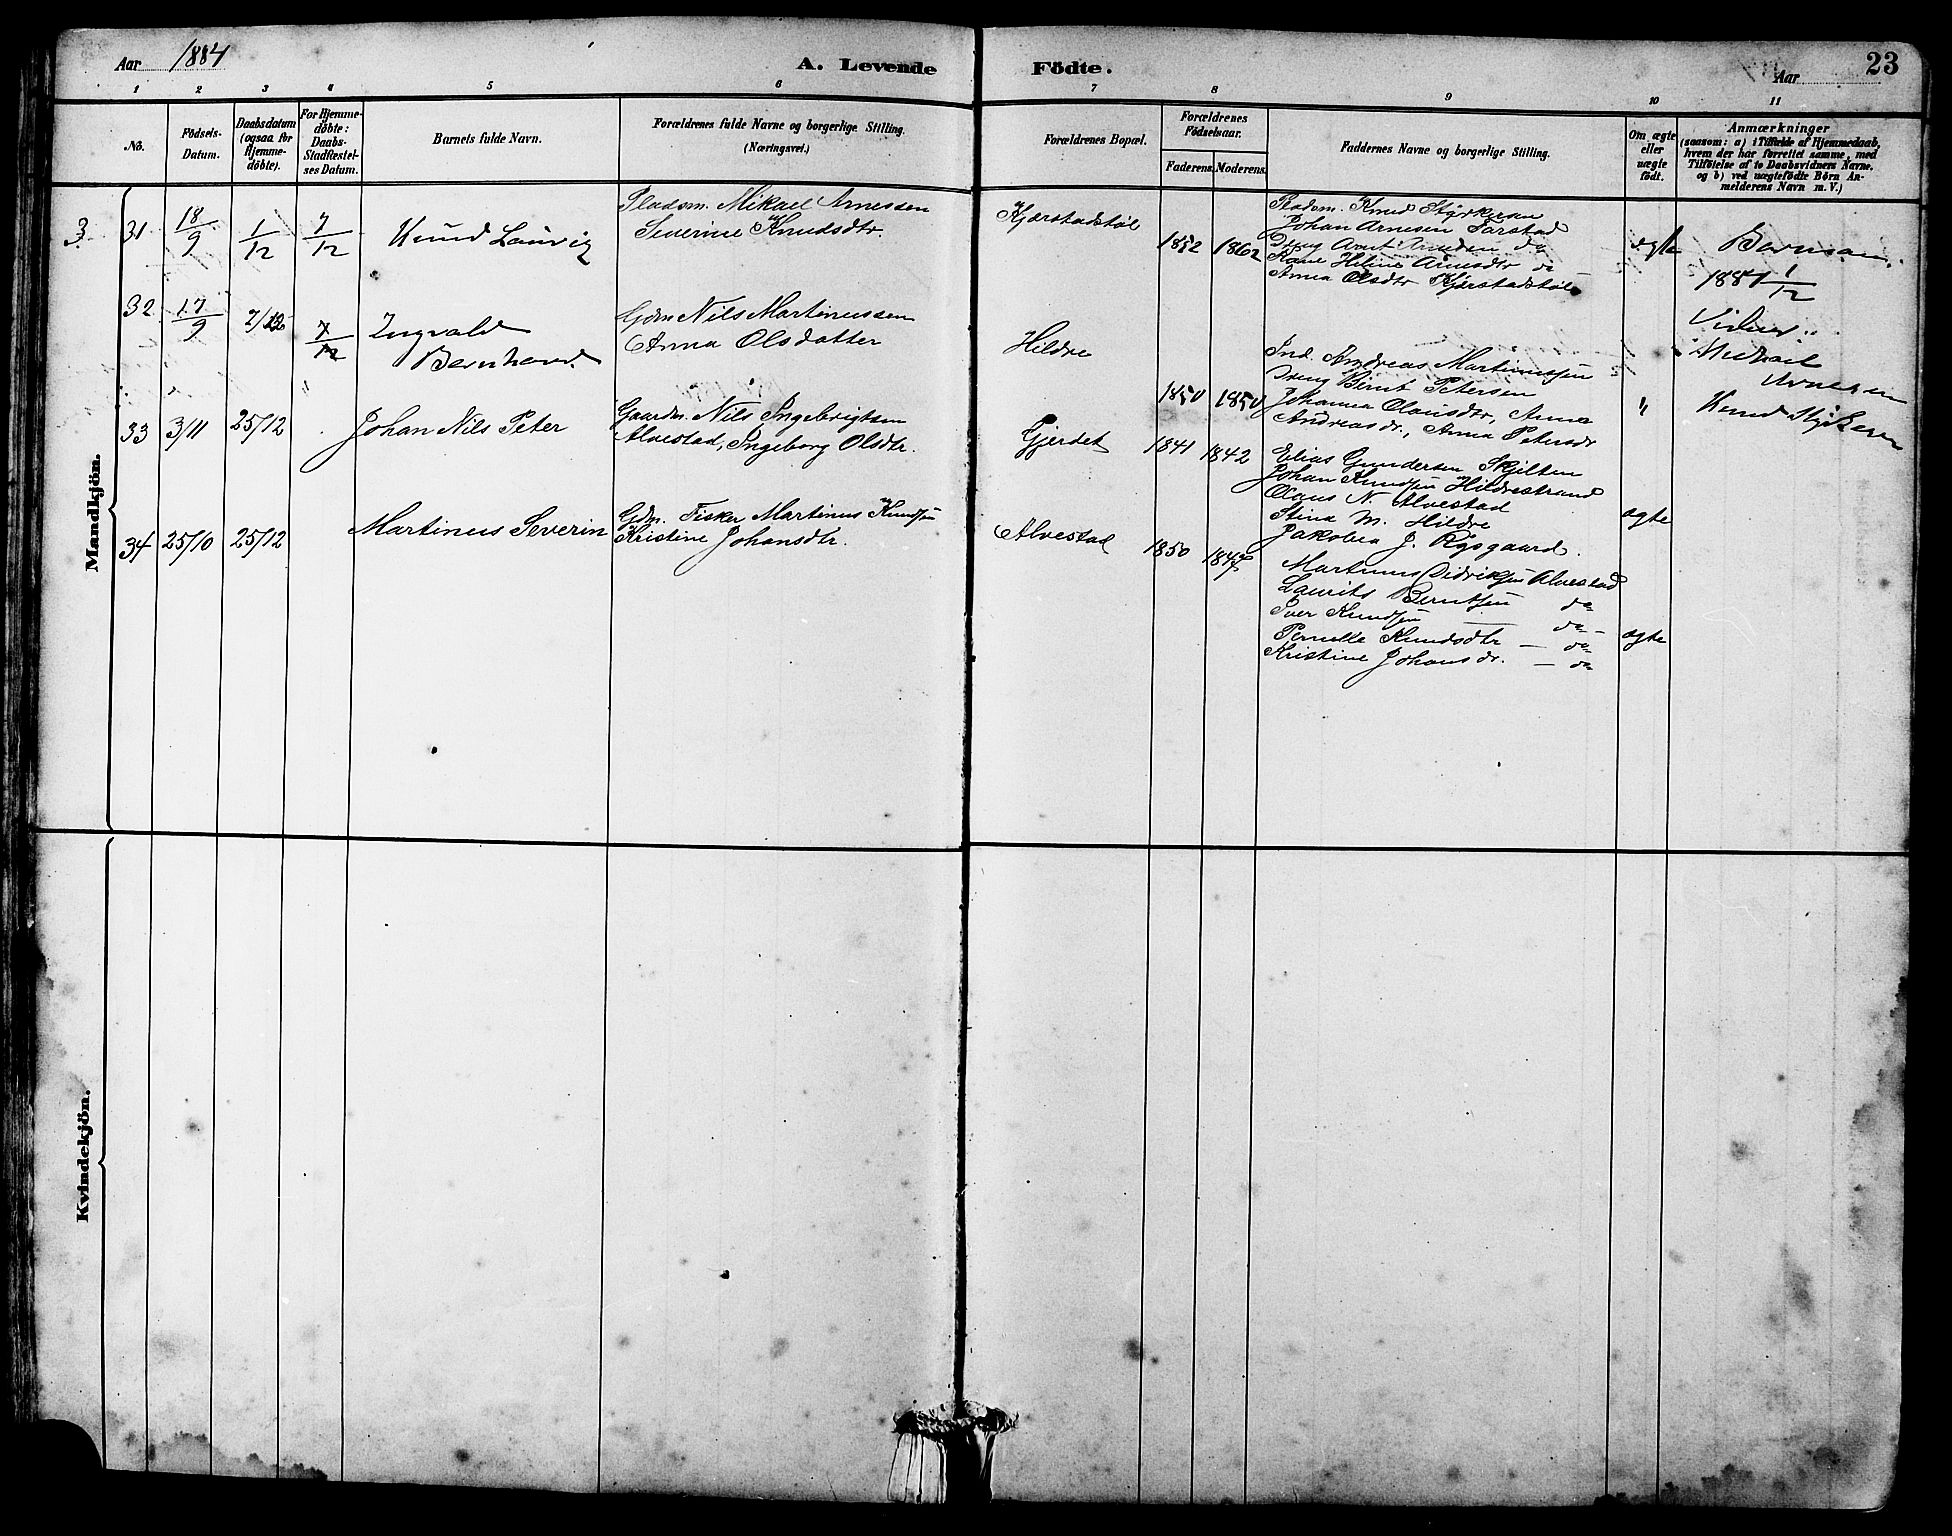 Aar 1884
A. Levende Födte.
Aar
23
1 2 3 4 5 6 7 8 9 10 11
No.
Födsels-
Datum.
Daabsdatum
(ogsaa for
Hjemme-
döbte).
For Hjemme-
döbte:
Daabs-
Stadfæstel-
ses Datum.
Barnets fulde Navn.
Forældrenes fulde Navne og borgerlige Stilling.
(Næringsvei.)
Forældrenes Bopæl.
Forældrenes
Födselsaar.
Faderens. Moderens.
Faddernes Navne og borgerlige Stilling.
Om ægte
eller
uægte
født.
Anmærkninger
(saasom: a) i Tilfælde af Hjemmedaab,
hvem der har forrettet samme, med
Tilföielse af to Daabsvidners Navne,
og b) ved uægtefödte Börn An-
melderens Navn m. V.)
Mandkjön.
3
31 18/9 1/12 7/12 Knud Lauvig
Pladsm. Mikael Arnessen
Severine Knudsdtr.
Kjærstadstøl
1852 1862
Pladsm. Knud Styrkersen
Johan Arnesen
Dreng Arnt do
Heline Arnesdtr do
Anna Olsdtr Kjærstadstøl
ægte
1884 1/12
32 17/9 2/12 7/12 Ingvald
Bernhard.
Gdm Nils Martinussen
Anna Olsdatter
Hildre
1850 1850
Ind. Andreas Martinussen
Dreng Bernt Petersen
Johanna Olausdtr, Anna
Andreasdr., Anna Petersdr
"
Mikael
Arnessen
Knud
33 3/11 25/12 Johan Nils Peter
Gaardm. Nils Ingebrigtsen
Alvestad, Ingeborg Olsdtr.
Gjerdet
1841 1842
Elias Gundersen Skjelten
Johan Knudsen Hildrestrand
Claus N. Alvestad
Stina M. Hildre
Jakobea J. Rysgaard.
ægte
34 25/10 25/12 Martinus Severin
Gdm. Fisker Martinus Knudsen
Kristine Johansdtr.
Alvestad
1850 1847
Martinus Didriksen Alvestad
Laurits Berntsen do
Iver Knudsen — do
Pernille Knudsdtr — do
Kristine Johansdr. — do
ægte
Kvindekjön.